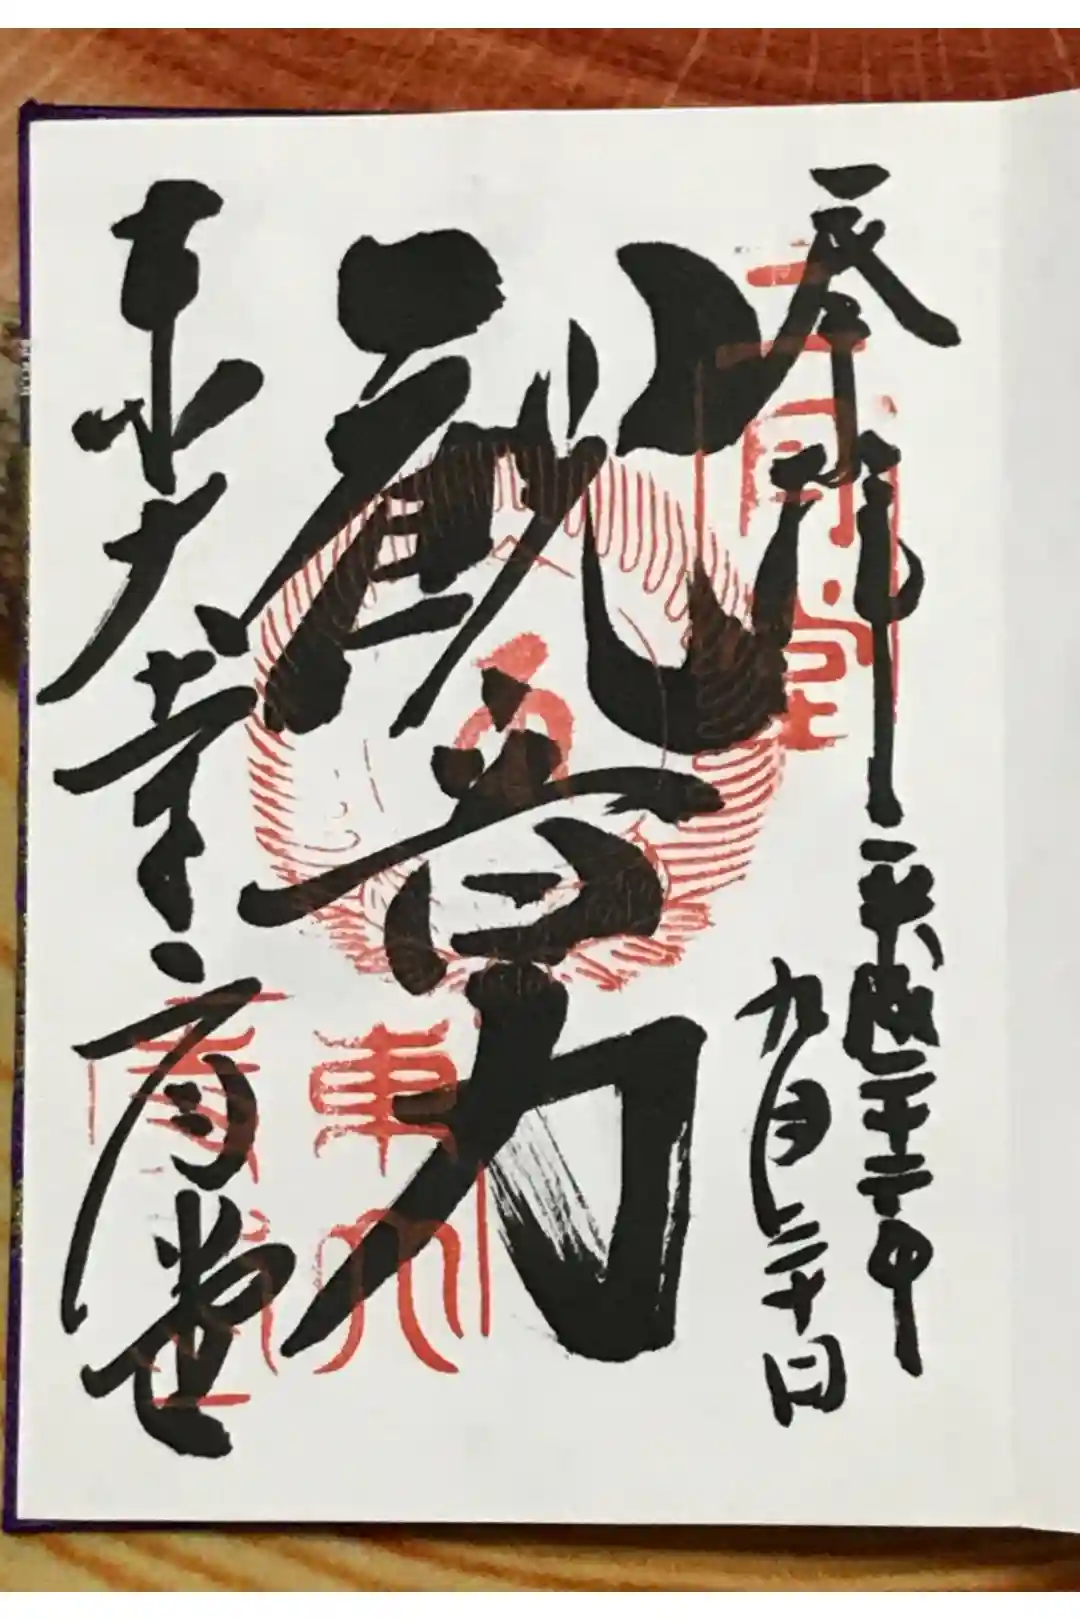 奉拝 平成二十二年
九月二十日
二月堂
観音力
東大寺二月堂
東大